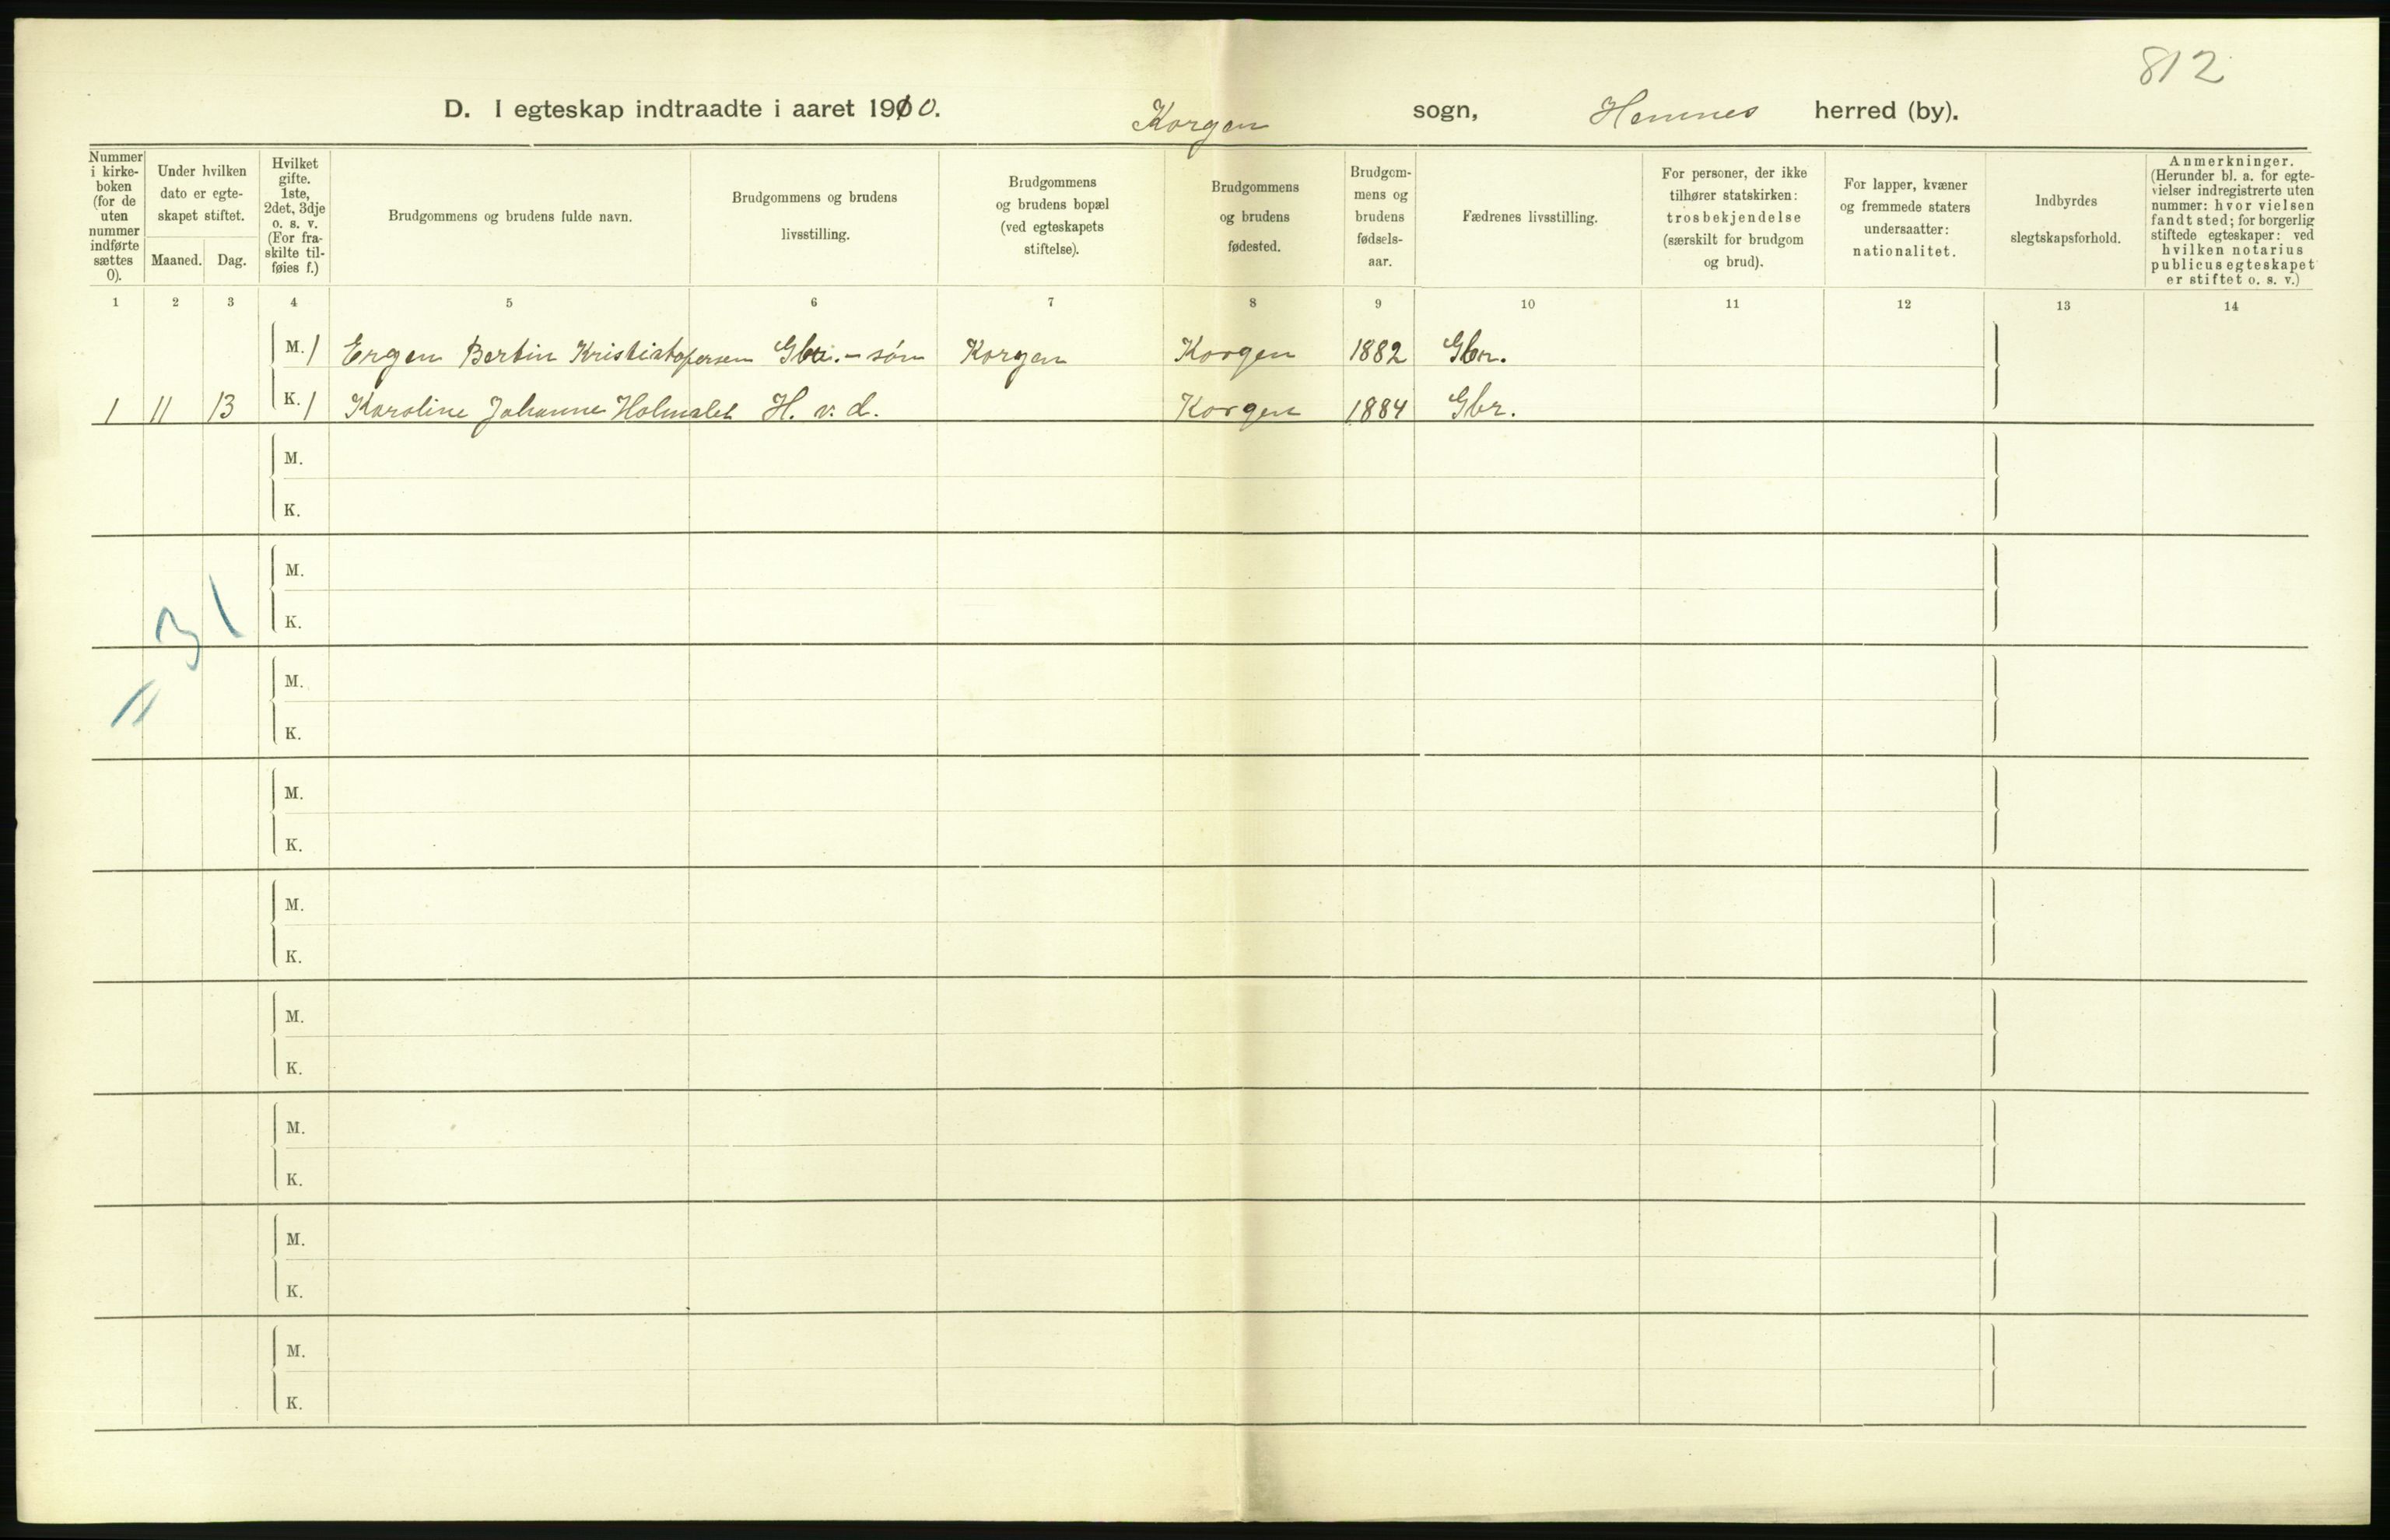 812
D. I egteskap indtraadte i aaret 1910. Korgen sogn, Hemnes herred (by).
Nummer i kirke-boken (for de uten nummer indførte sættes 0).
Under hvilken dato er egte-skapet stiftet.
Maaned. Dag.
Hvilket gifte. 1ste, 2det, 3dje o. s. v. (For fra-skilte til-føies f.)
Brudgommens og brudens fulde navn.
Brudgommens og brudens livsstilling.
Brudgommens og brudens bopæl (ved egteskapets stiftelse).
Brudgommens og brudens fødested.
Brudgom-mens og brudens fødsels-aar.
Fædrenes livsstilling.
For personer, der ikke tilhører statskirken: trosbekjendelse (særskilt for brudgom og brud).
For lapper, kvæner og fremmede staters undersaatter: nationalitet.
Indbyrdes slegtskapsforhold.
Anmerkninger. (Herunder bl. a. for egte-vielser indregistrerte uten nummer: hvor vielsen fandt sted; for borgerlig stiftede egteskaper: ved hvilken notarius publicus egteskapet er stiftet o. s. v.)
1 2 3 4 5 6 7 8 9 10 11 12 13 14
M. 1 Ergen Bertin Kristiatofersen Gbr.-søn Korgen Korgen 1882 Gbr.
1 11 13 K. 1 Karoline Johanne Holmslet H. v. d. Korgen 1884 Gbr.
M.
K.
M.
K.
31
M.
11
K.
M.
K.
M.
K.
M.
K.
M.
K.
M.
K.
M.
K.